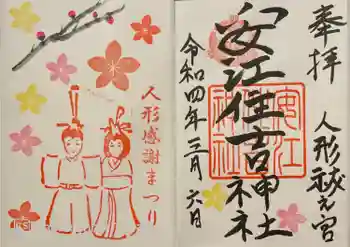 奉拝
人形祓え宮
安江住吉神社
安江
神社
令和四年三月六日
人形感謝まつり